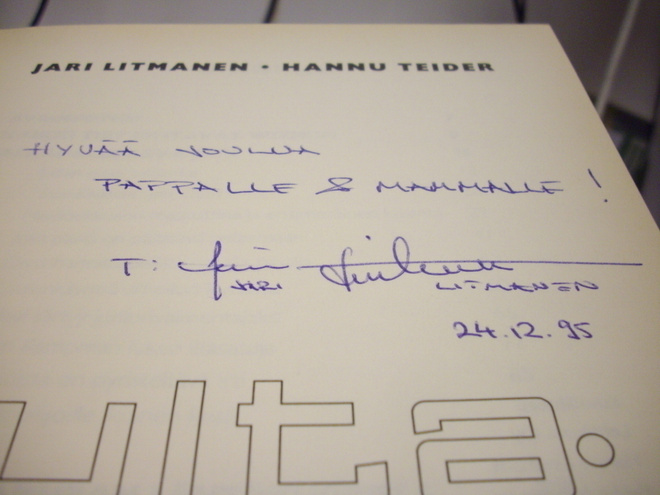 JARI LITMANEN • HANNU TEIDER
HYVÄÄ JOULUA
PAPPALLE & MAMMALLE !
T: Jari Litmanen
JARI LITMANEN
24.12.95
ulta.